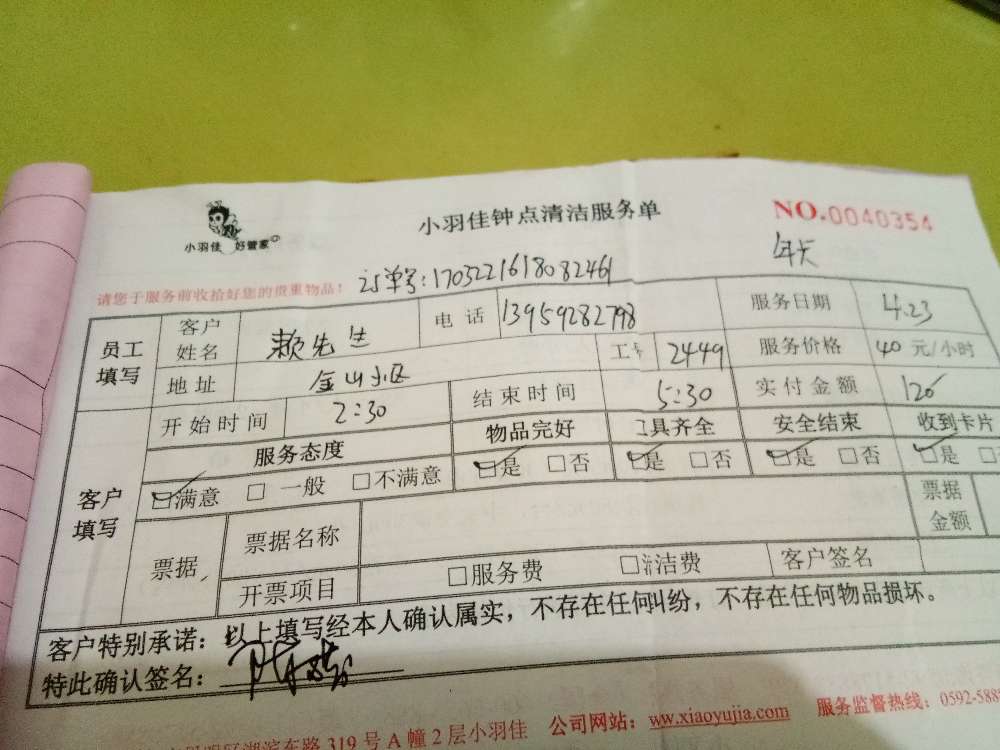 小羽佳 好管家
小羽佳钟点清洁服务单
NO.0040354
年卡
请您于服务前收拾好您的贵重物品! 订单号:1703221618082461
员工填写 客户姓名 赖先生 电话 13959282798 服务日期 4.23
地址 金山小区 工号 2449 服务价格 40 元/小时
开始时间 2:30 结束时间 5:30 实付金额 120
客户填写 服务态度 物品完好 工具齐全 安全结束 收到卡片
☑满意 □一般 □不满意 ☑是 □否 ☑是 □否 ☑是 □否 ☑是 □
票据 票据名称 票据金额
开票项目 □服务费 □清洁费 客户签名
客户特别承诺:以上填写经本人确认属实,不存在任何纠纷,不存在任何物品损坏。
特此确认签名:
湖滨东路 319 号 A 幢 2 层小羽佳 公司网站:www.xiaoyujia.com 服务监督热线:0592-588